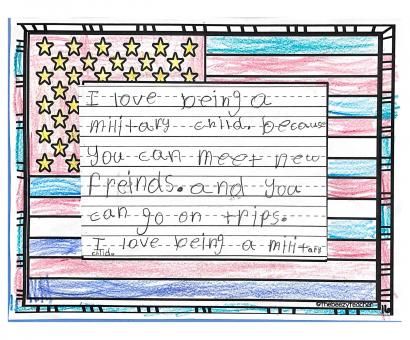 I love being a
military child. because
you can meet new
freinds. and you
can go on trips.
I love being a military
child.
©TheBeezyTeacher